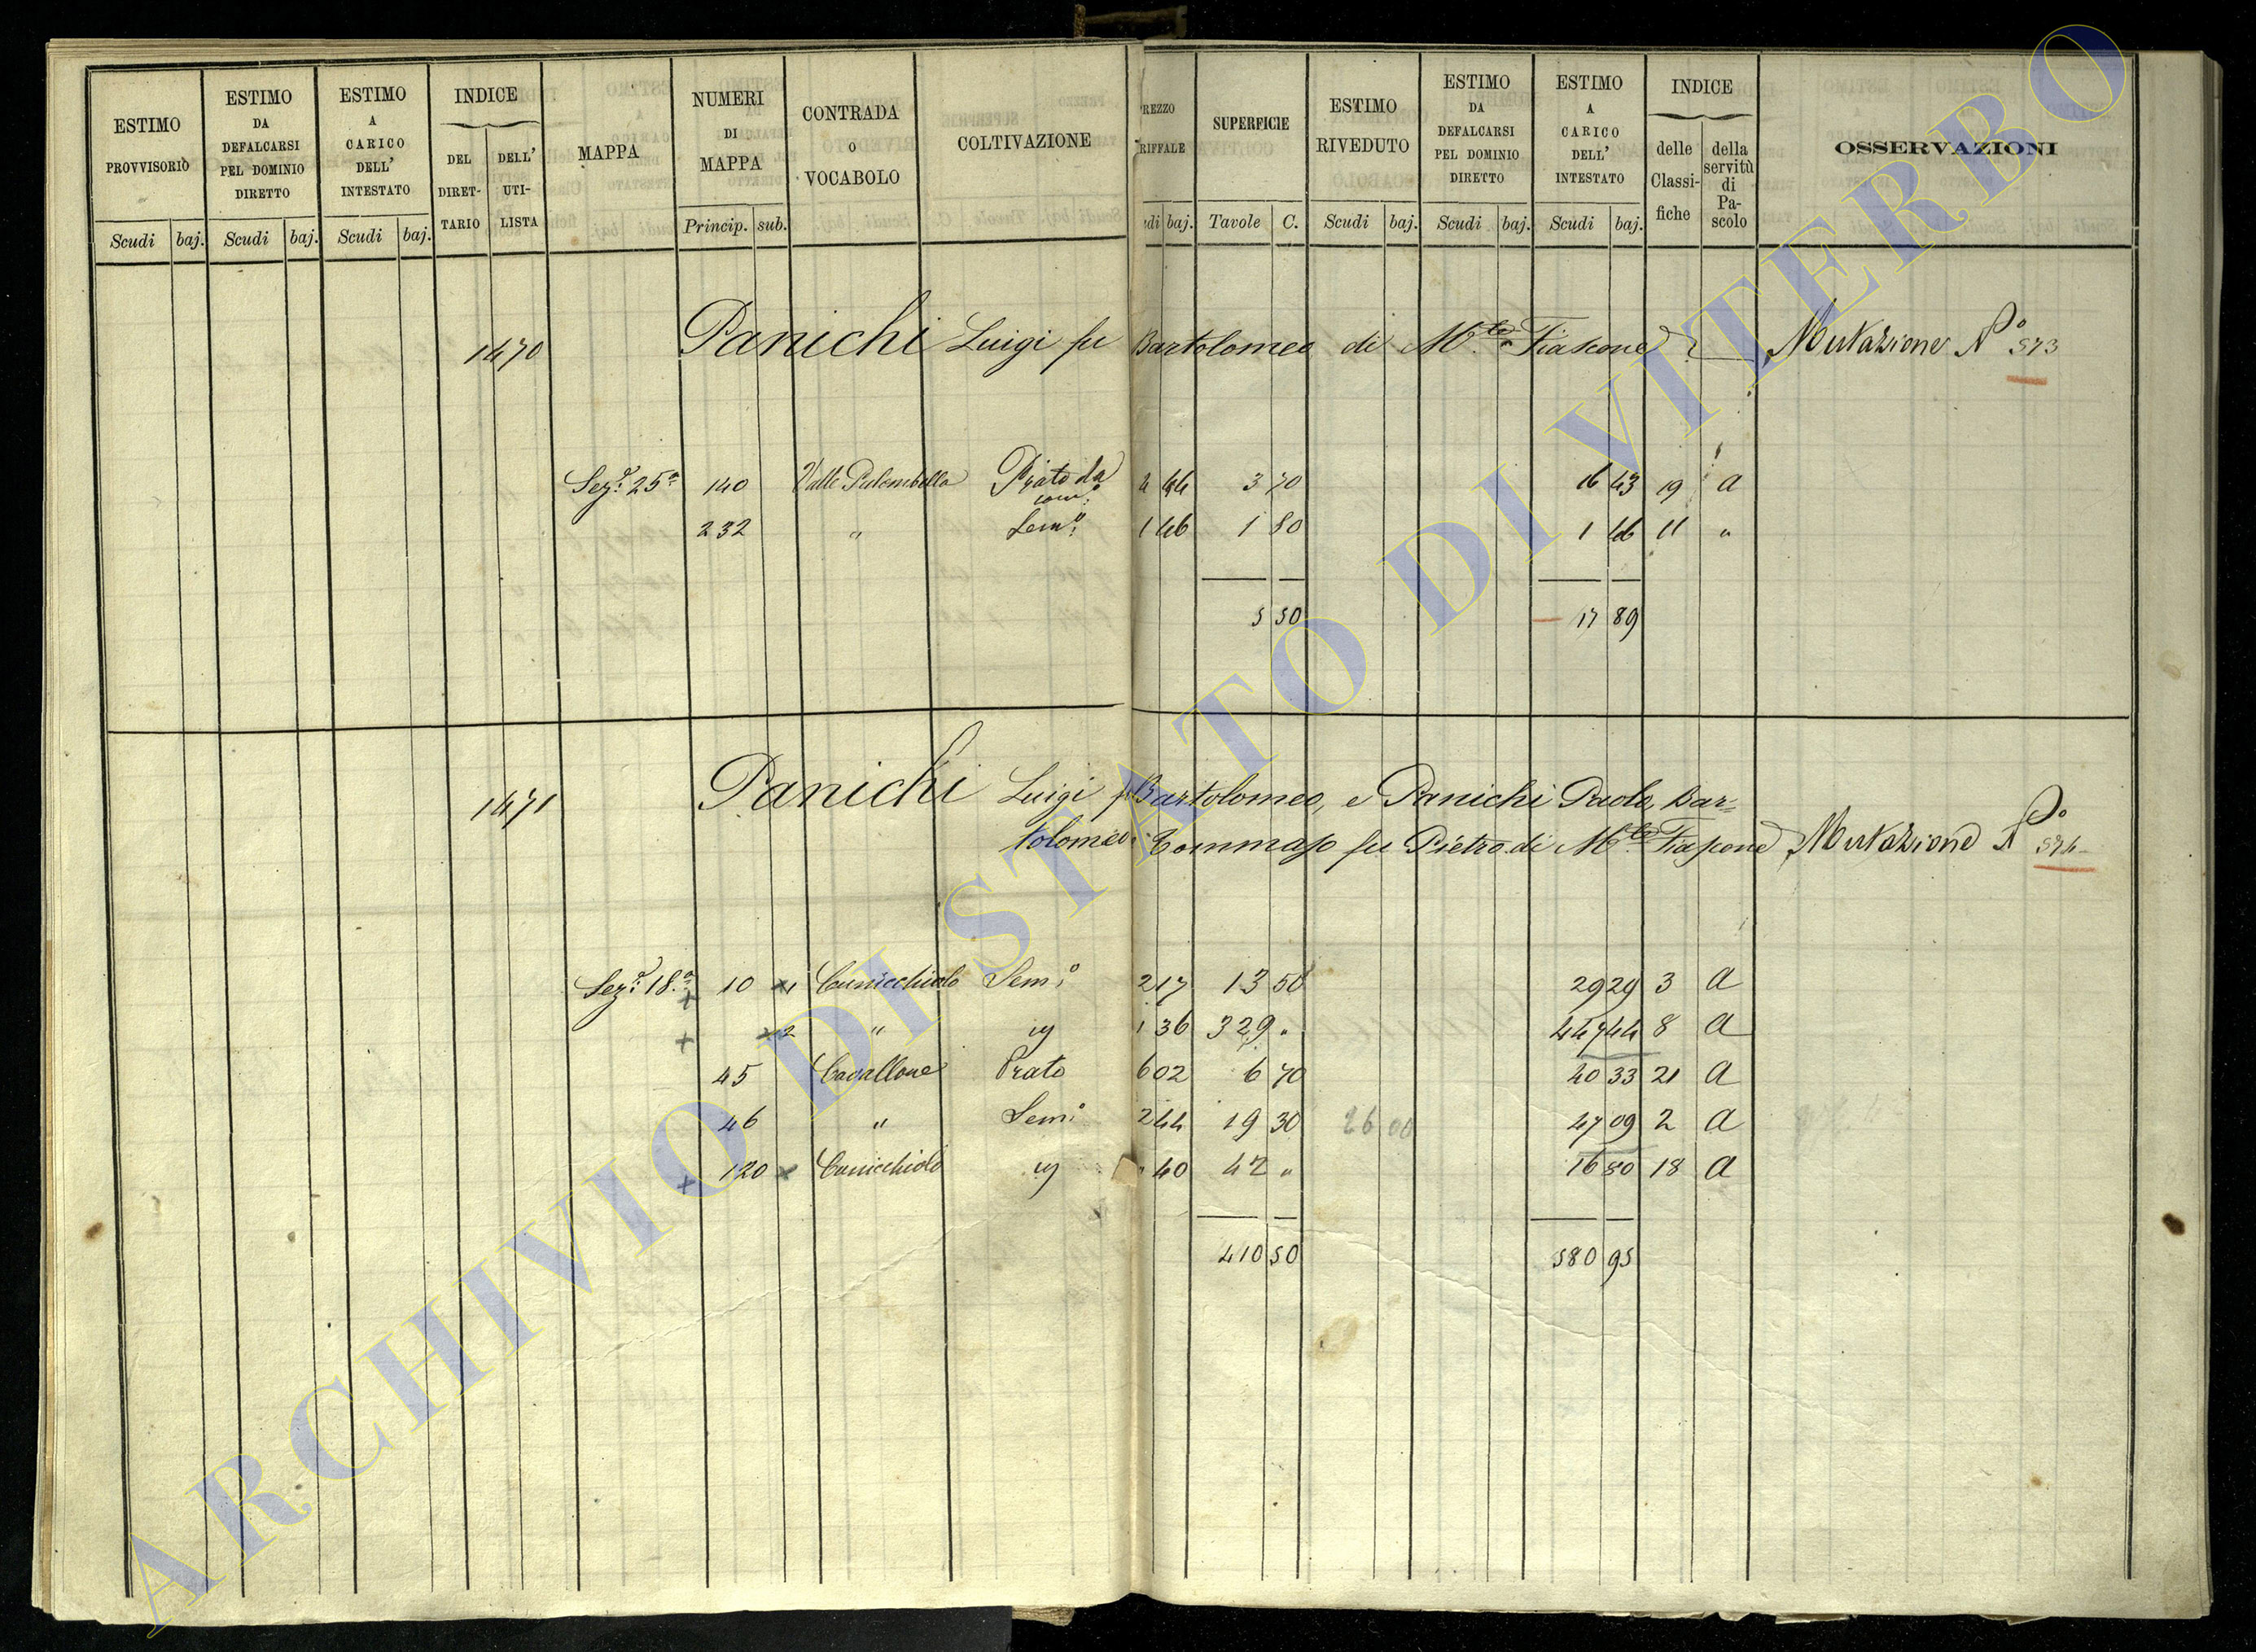 ESTIMO PROVVISORIO
ESTIMO DA DEFALCARSI PEL DOMINIO DIRETTO
ESTIMO A CARICO DELL' INTESTATO
INDICE
DEL DIRET-TARIO
DELL' UTI-LISTA
MAPPA
NUMERI DI MAPPA
CONTRADA O VOCABOLO
COLTIVAZIONE
REZZO RIFFALE
SUPERFICIE
ESTIMO RIVEDUTO
ESTIMO DA DEFALCARSI PEL DOMINIO DIRETTO
ESTIMO A CARICO DELL' INTESTATO
INDICE
delle Classi-fiche
della servitù di Pa-scolo
OSSERVAZIONI
Scudi baj. Scudi baj. Scudi baj. Princip. sub. udi baj. Tavole C. Scudi baj. Scudi baj. Scudi baj.
1470 Panichi Luigi fu Bartolomeo di M.te Fiascone Mutazione N° 573
Sez.e 25a 140 Valle Palombella Prato da 4 44 3 70 16 43 19 a
232 " Sem.o 1 46 1 80 1 46 11 "
5 50 17 89
1471 Panichi Luigi fu Bartolomeo, e Panichi Paolo, Bar=
tolomeo, Tommaso fu Pietro di M.te Fiascone Mutazione N° 574
Sez.e 18a 10 1 Cunicchiolo Sem.o 2 17 13 50 29 29 3 a
2 " 1 36 329 " 447 44 8 a
45 Cavallone Prato 6 02 6 70 40 33 21 a
46 " Sem.o 2 44 19 30 26 00 47 09 2 a
120 Cunicchiolo " 40 42 " 16 80 18 a
410 50 580 95
ARCHIVIO DI STATO DI VITERBO